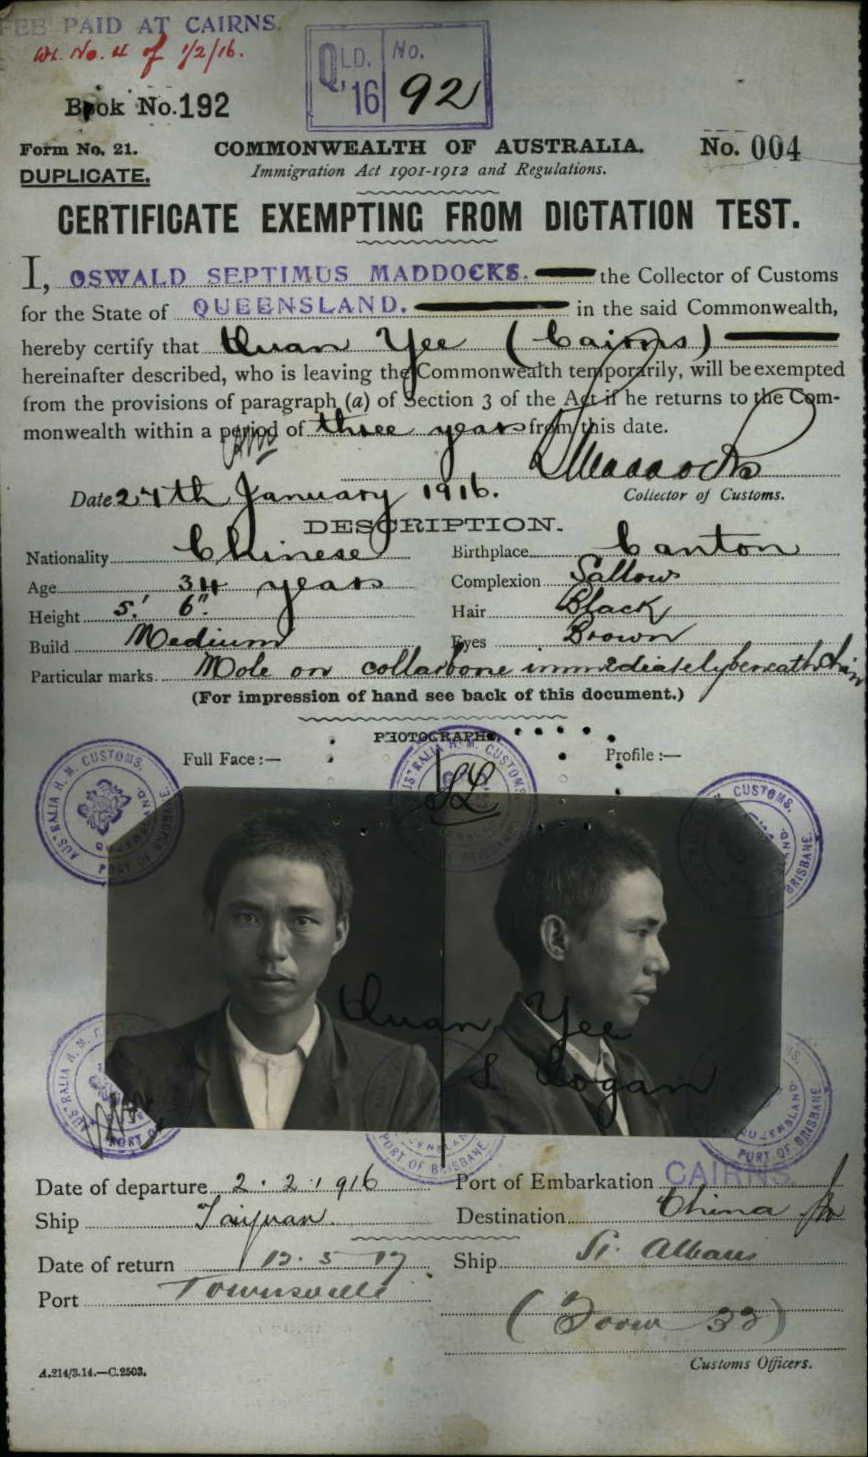 FEE PAID AT CAIRNS.
No. 4 of 1/2/16.
QLD. No.
'16 92
Book No. 192
Form No. 21.
COMMONWEALTH OF AUSTRALIA.
No. 004
DUPLICATE.
Immigration Act 1901-1912 and Regulations.
CERTIFICATE EXEMPTING FROM DICTATION TEST.
I, OSWALD SEPTIMUS MADDOCKS. the Collector of Customs
for the State of QUEENSLAND. in the said Commonwealth,
hereby certify that Quan Yee (Cairns)
hereinafter described, who is leaving the Commonwealth temporarily, will be exempted
from the provisions of paragraph (a) of Section 3 of the Act if he returns to the Com-
monwealth within a period of three years from this date.
Maddocks
Date 27th January 1916. Collector of Customs.
DESCRIPTION.
Nationality Chinese Birthplace Canton
Age 34 years Complexion Sallow
Height 5' 6" Hair Black
Build Medium Eyes Brown
Particular marks. Mole on collarbone immediately beneath chin
(For impression of hand see back of this document.)
PHOTOGRAPHS.
Full Face :— Profile :—
AUSTRALIA H. M. CUSTOMS.
QUEENSLAND
PORT OF BRISBANE
Quan Yee
S. Logan
Date of departure 2.2.1916 Port of Embarkation CAIRNS.
Ship Taiyuan Destination China
Date of return 17.5.17 Ship St. Albans
Port Townsville
(Form 32)
Customs Officers.
A.214/3.14.—C.2503.